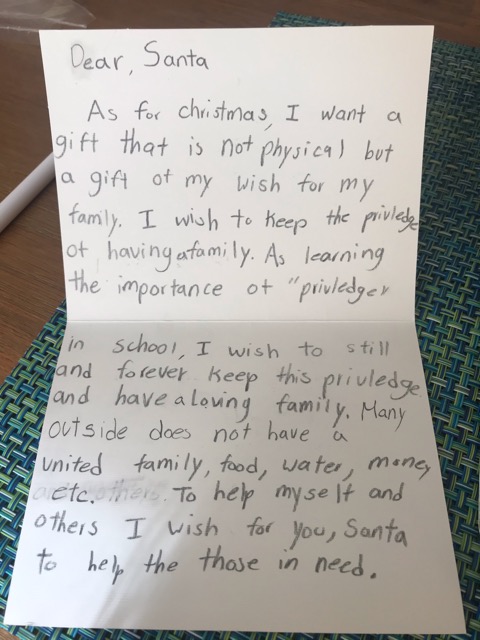 Dear, Santa
As for christmas, I want a
gift that is not physical but
a gift of my wish for my
family. I wish to keep the privledge
of having a family. As learning
the importance of "privledge"
in school, I wish to still
and forever keep this privledge
and have a loving family. Many
outside does not have a
united family, food, water, money
etc. To help myself and
others I wish for you, Santa
to help the those in need.